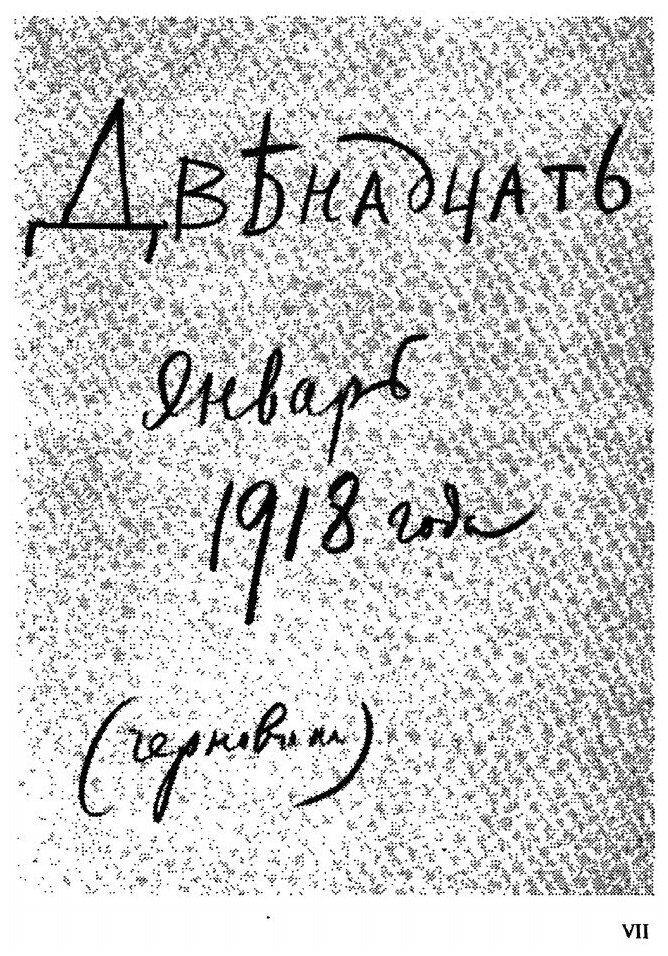 Двѣнадцать
Январь
1918 года
(черновики)
VII